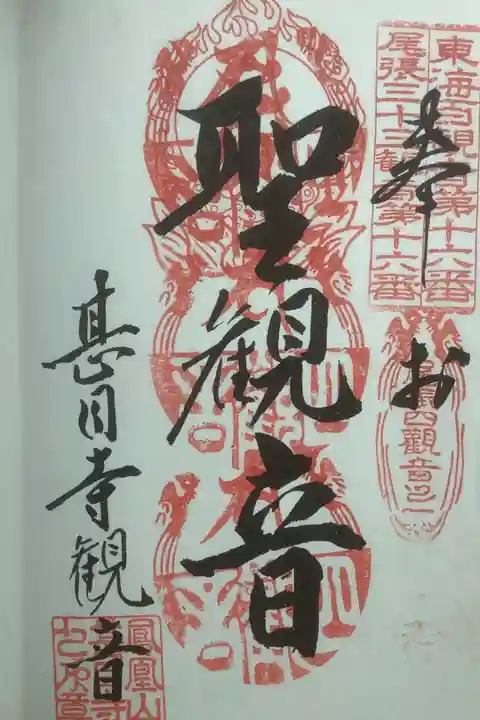 東海百観音第十六番
尾張三十三観音第十六番
尾張四観音之一
奉
聖観音
甚目寺観音
鳳凰山
甚目寺